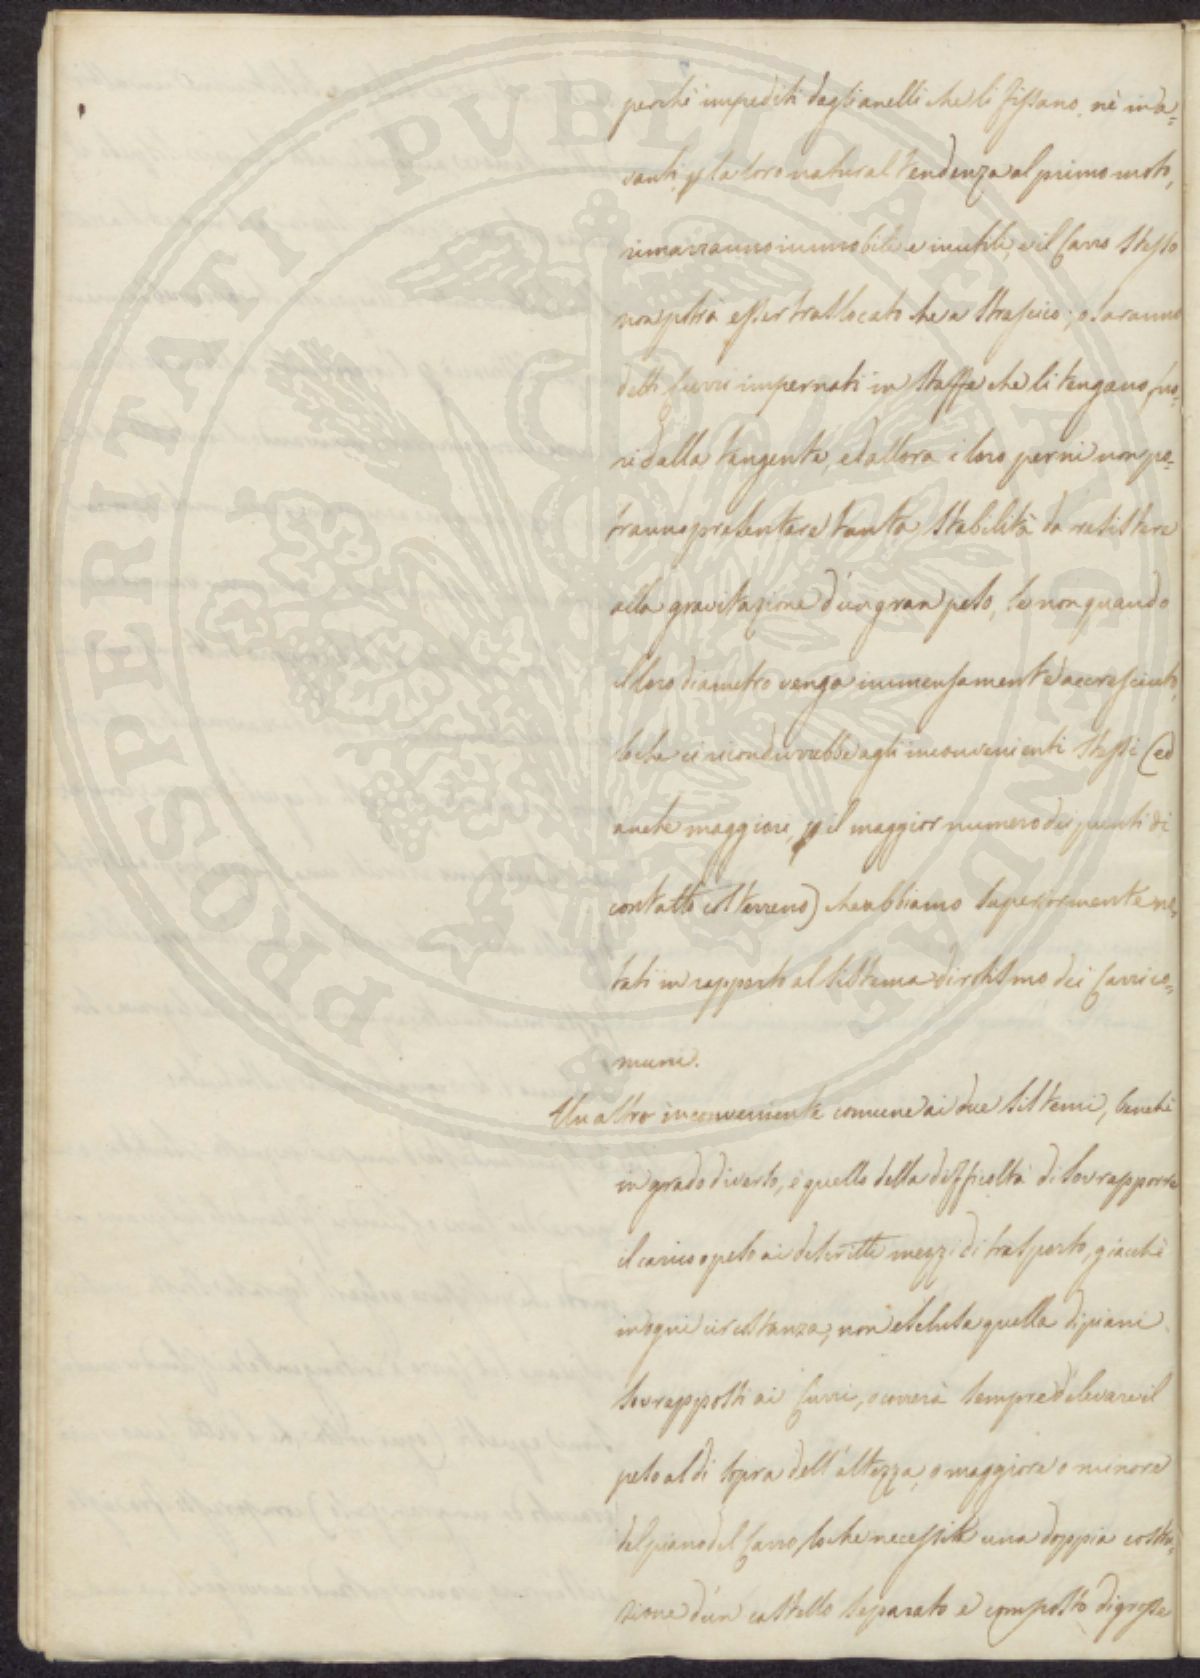 perchè impediti dagli anelli che li fissano, nè inda=
vanti, p la loro natural tendenza al primo moto,
rimarranno immobili e inutili, e il Carro stesso
non potrà esser traslocato che a strascico; o saranno
detti Curri impernati in staffe che li tengano fuo=
ri dalla tangente, ed allora i loro perni non po=
tranno presentare tanta stabilità da resistere
alla gravitazione d'un gran peso, se non quando
il loro diametro venga immensamente accresciuto,
loche ci ricondurrebbe agli inconvenienti stessi (ed
anche maggiori, p il maggior numero dei punti di
contatto col terreno) che abbiamo superiormente no=
tati in rapporto al sistema di rotismo dei Carri co=
muni.
Un altro inconveniente comune ai due sistemi, benchè
in grado diverso, è quello della difficoltà di sovrapporre
il carico o peso ai descritti mezzi di trasporto, giacchè
in ogni circostanza, non esclusa quella di piani
sovrapposti ai Curri, occorrerà sempre d'elevare il
peso al di sopra dell'altezza, o maggiore o minore
del piano del Carro, loche necessita una doppia costru=
zione d'un castello separato e composto di grosse
PROSPERITATI PUBLICAE AUGENDAE